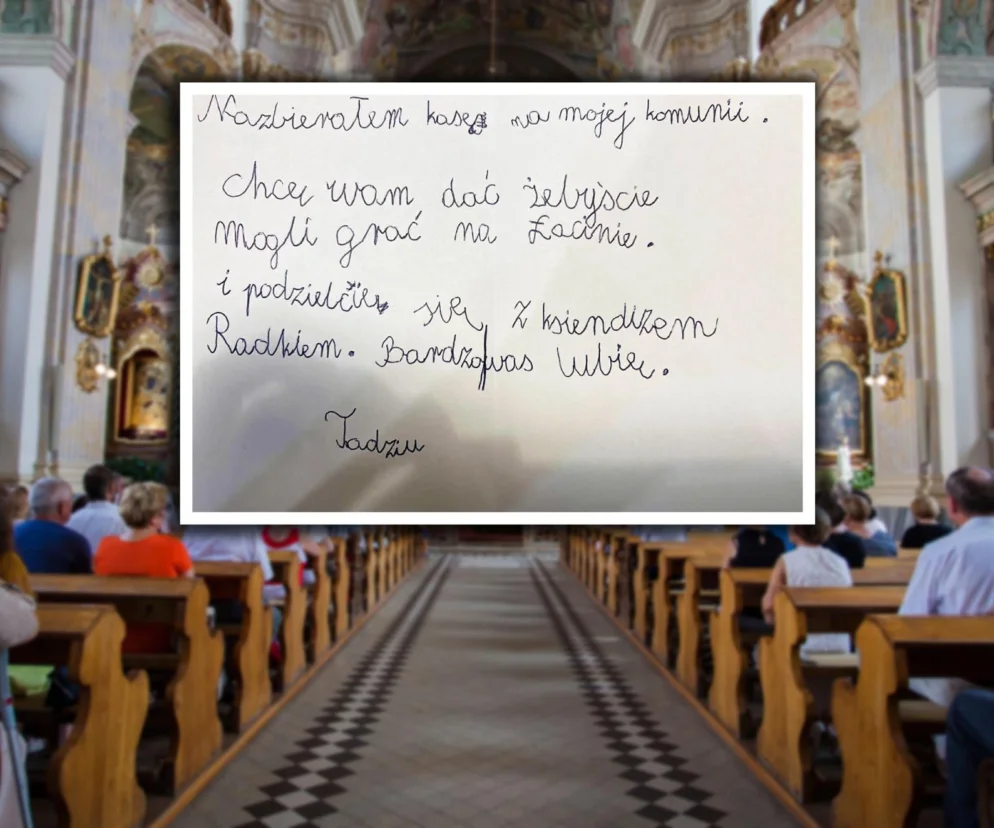 Nazbierałem kasę na mojej komunii.
Chcę wam dać żebyście
mogli grać na Łacinie.
i podzielcie się z ksiendzem
Radkiem. Bardzo was lubię.
Tadziu